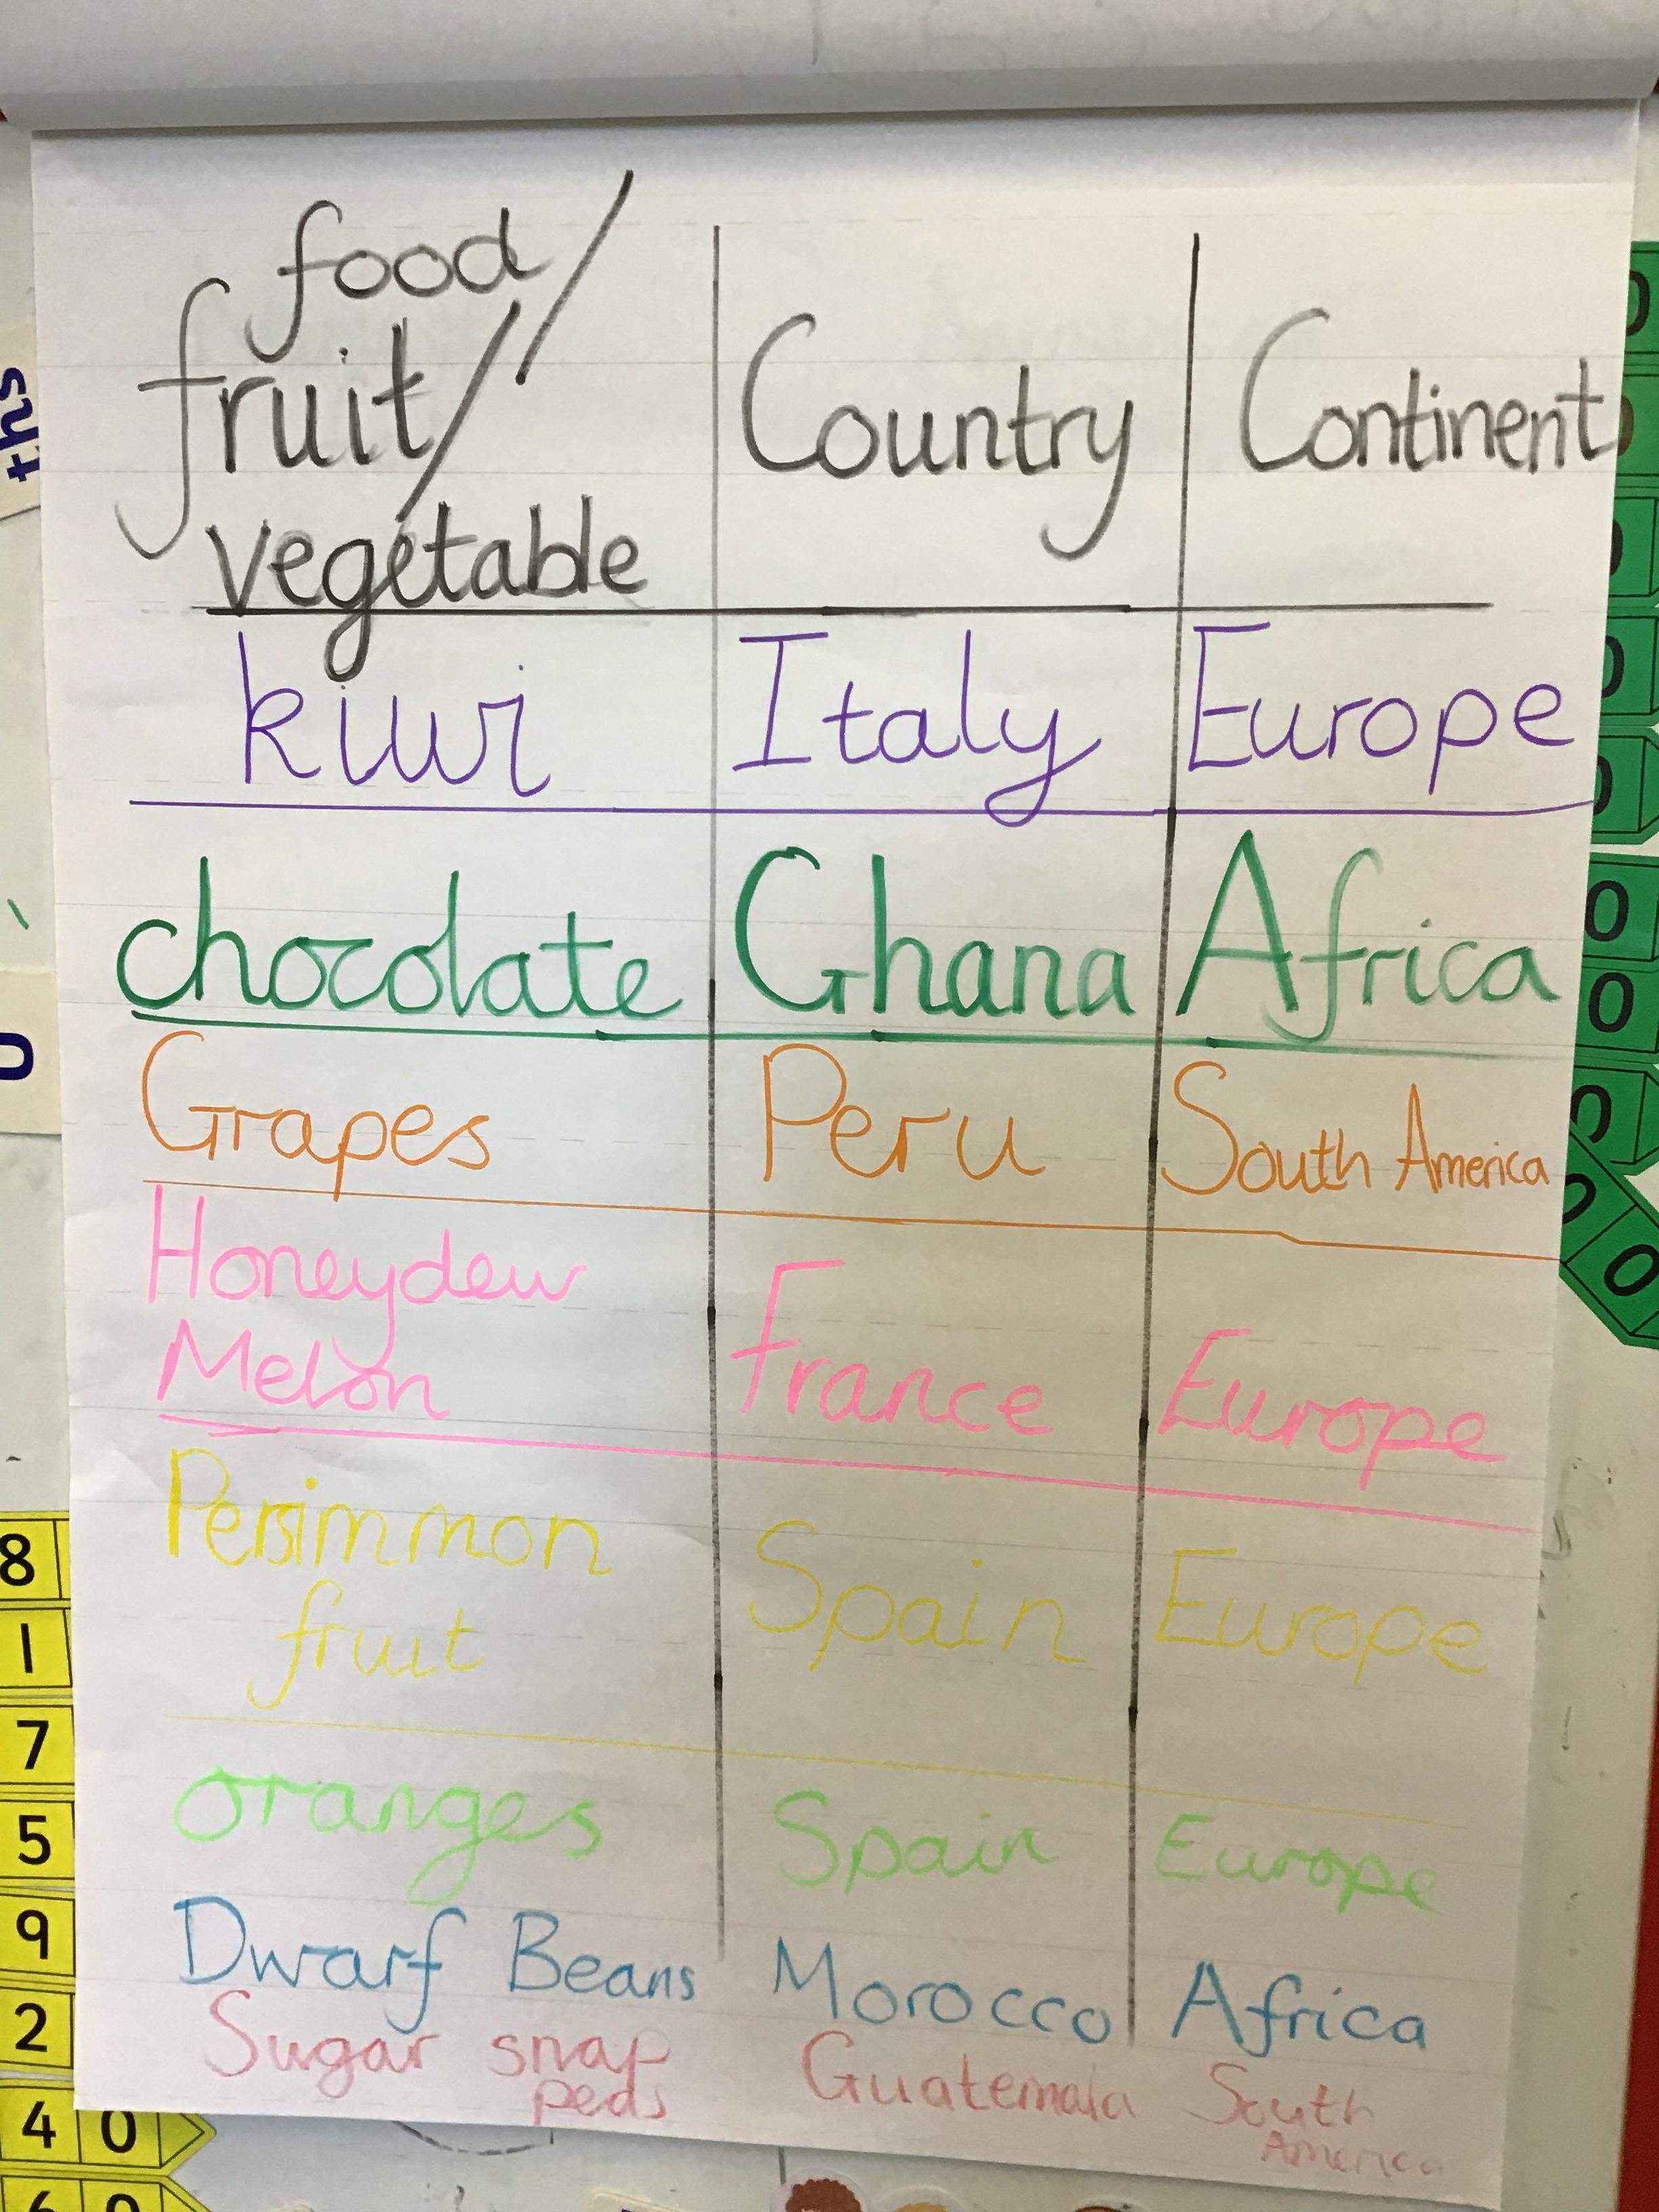 food/
fruit/ Country Continent
vegetable
kiwi Italy Europe
chocolate Ghana Africa
Grapes Peru South America
Honeydew
Melon France Europe
Persimmon
fruit Spain Europe
oranges Spain Europe
Dwarf Beans Morocco Africa
Sugar snap Guatemala South
peas America
ths
0
0
0
0
0
0
0
0
0
0
8
1
7
5
9
2
4 0
6 0